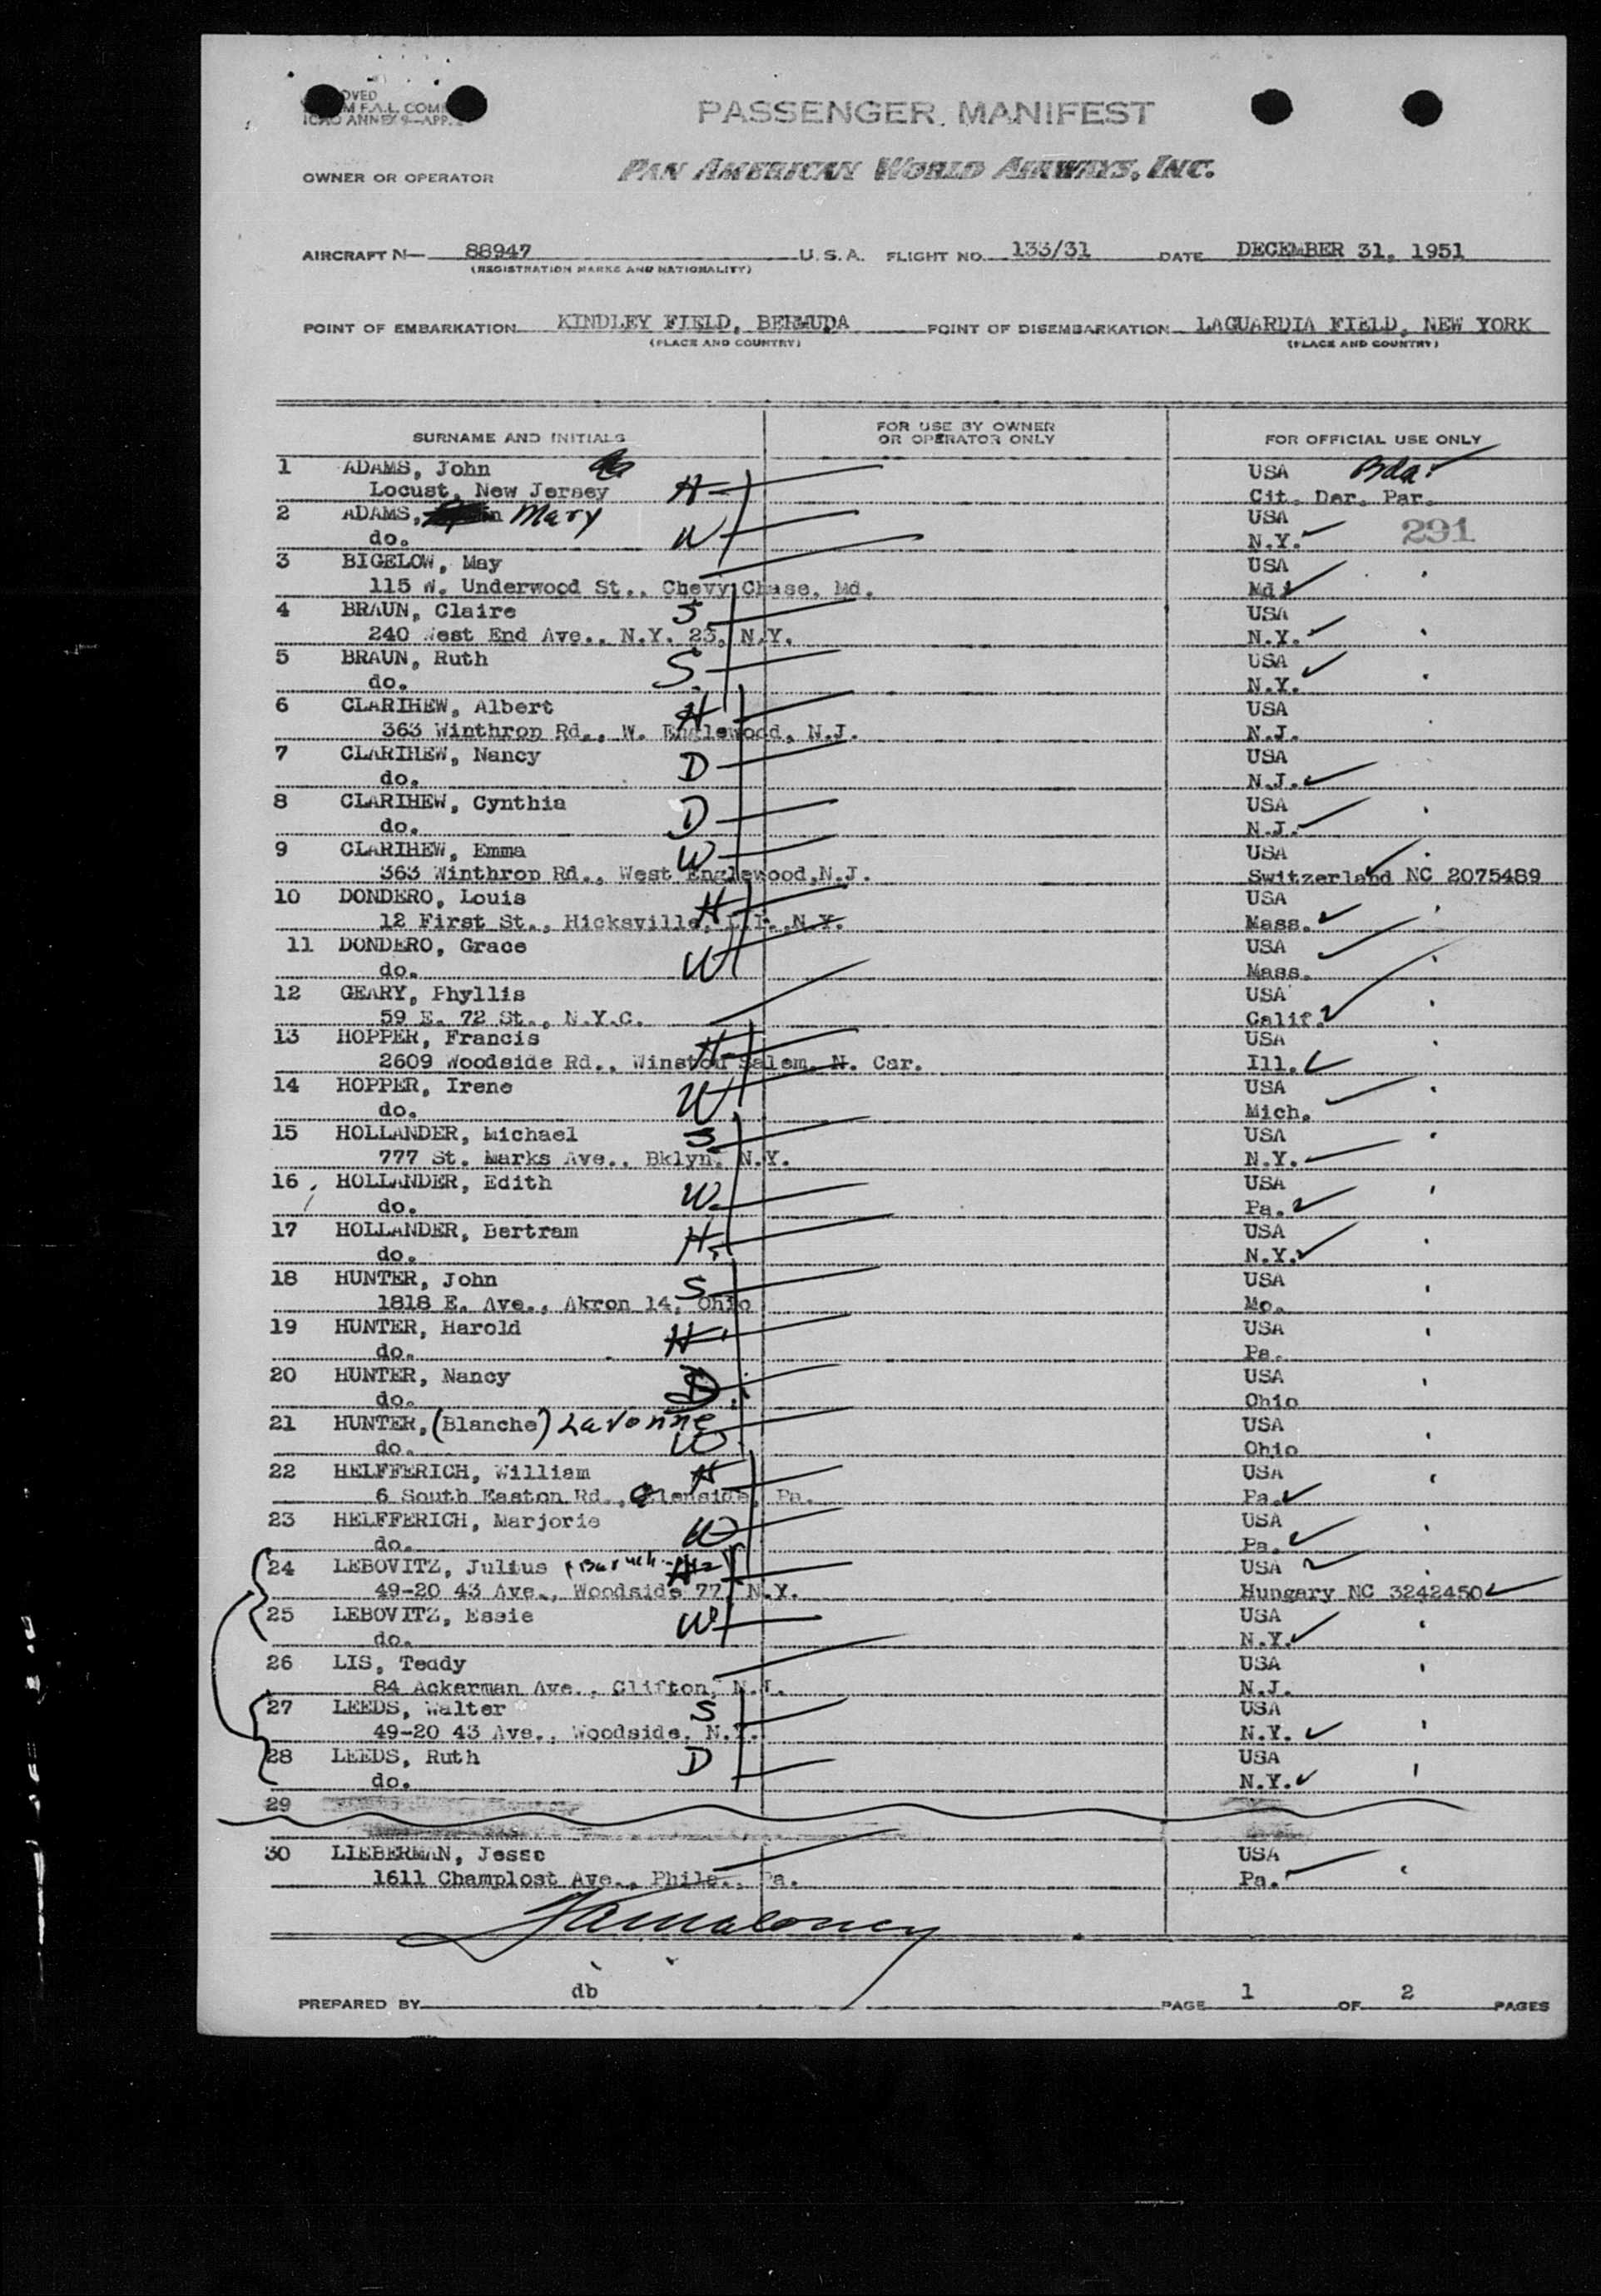 OVED
M F.A.L. COM
ICAO ANNEX 9—APP.
PASSENGER MANIFEST
OWNER OR OPERATOR PAN AMERICAN WORLD AIRWAYS, INC.
AIRCRAFT N— 88947 U.S.A. FLIGHT NO. 133/31 DATE DECEMBER 31, 1951
(REGISTRATION MARKS AND NATIONALITY)
POINT OF EMBARKATION KINDLEY FIELD, BERMUDA POINT OF DISEMBARKATION LAGUARDIA FIELD, NEW YORK
(PLACE AND COUNTRY) (PLACE AND COUNTRY)
SURNAME AND INITIALS FOR USE BY OWNER OR OPERATOR ONLY FOR OFFICIAL USE ONLY
1 ADAMS, John USA Bda.
Locust, New Jersey H Cit. Der. Par.
2 ADAMS, Mary USA
do. W N.Y. 291
3 BIGELOW, May USA
115 W. Underwood St., Chevy Chase, Md. Md.
4 BRAUN, Claire S USA
240 West End Ave., N.Y. 23, N.Y. N.Y.
5 BRAUN, Ruth S USA
do. N.Y.
6 CLARIHEW, Albert H USA
363 Winthrop Rd., W. Englewood, N.J. N.J.
7 CLARIHEW, Nancy D USA
do. N.J.
8 CLARIHEW, Cynthia D USA
do. N.J.
9 CLARIHEW, Emma W USA
363 Winthrop Rd., West Englewood,N.J. Switzerland NC 2075489
10 DONDERO, Louis H USA
12 First St., Hicksville, L.I.,N.Y. Mass.
11 DONDERO, Grace W USA
do. Mass.
12 GEARY, Phyllis USA
59 E. 72 St., N.Y.C. Calif.
13 HOPPER, Francis H USA
2609 Woodside Rd., Winston Salem, N. Car. Ill.
14 HOPPER, Irene W USA
do. Mich.
15 HOLLANDER, Michael S USA
777 St. Marks Ave., Bklyn, N.Y. N.Y.
16 HOLLANDER, Edith W USA
do. Pa.
17 HOLLANDER, Bertram H USA
do. N.Y.
18 HUNTER, John S USA
1818 E. Ave., Akron 14, Ohio Mo.
19 HUNTER, Harold H USA
do. Pa.
20 HUNTER, Nancy D USA
do. Ohio
21 HUNTER, (Blanche) LaVonne USA
do. W Ohio
22 HELFFERICH, William H USA
6 South Easton Rd., Glenside, Pa. Pa.
23 HELFFERICH, Marjorie W USA
do. Pa.
24 LEBOVITZ, Julius (Baruch) H USA
49-20 43 Ave., Woodside 77, N.Y. Hungary NC 3242450
25 LEBOVITZ, Essie W USA
do. N.Y.
26 LIS, Teddy USA
84 Ackerman Ave., Clifton, N.J. N.J.
27 LEEDS, Walter S USA
49-20 43 Ave., Woodside, N.Y. N.Y.
28 LEEDS, Ruth D USA
do. N.Y.
29
30 LIEBERMAN, Jesse USA
1611 Champlost Ave., Phila., Pa. Pa.
PREPARED BY db PAGE 1 OF 2 PAGES